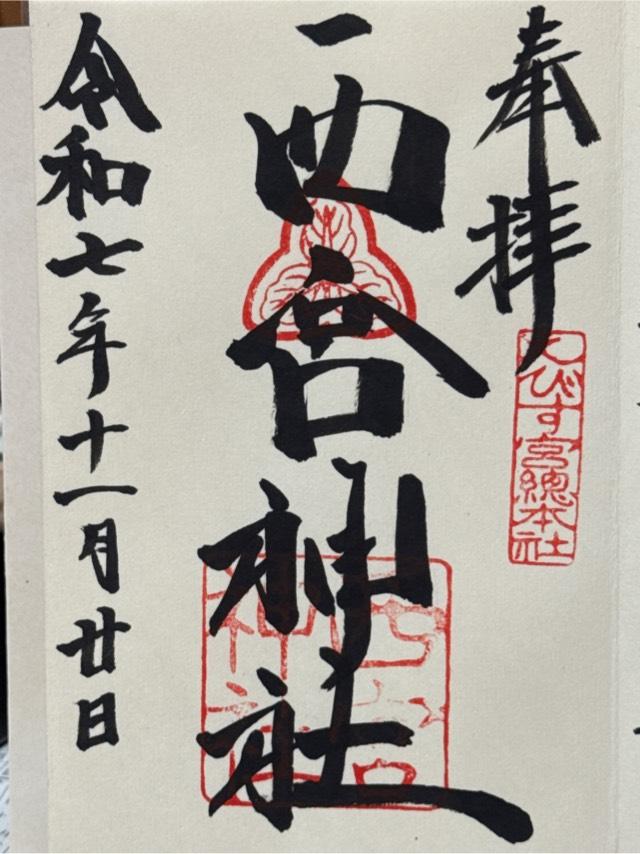 奉拝
えびす宮總本社
西宮神社
西宮神社
令和七年十一月廿日